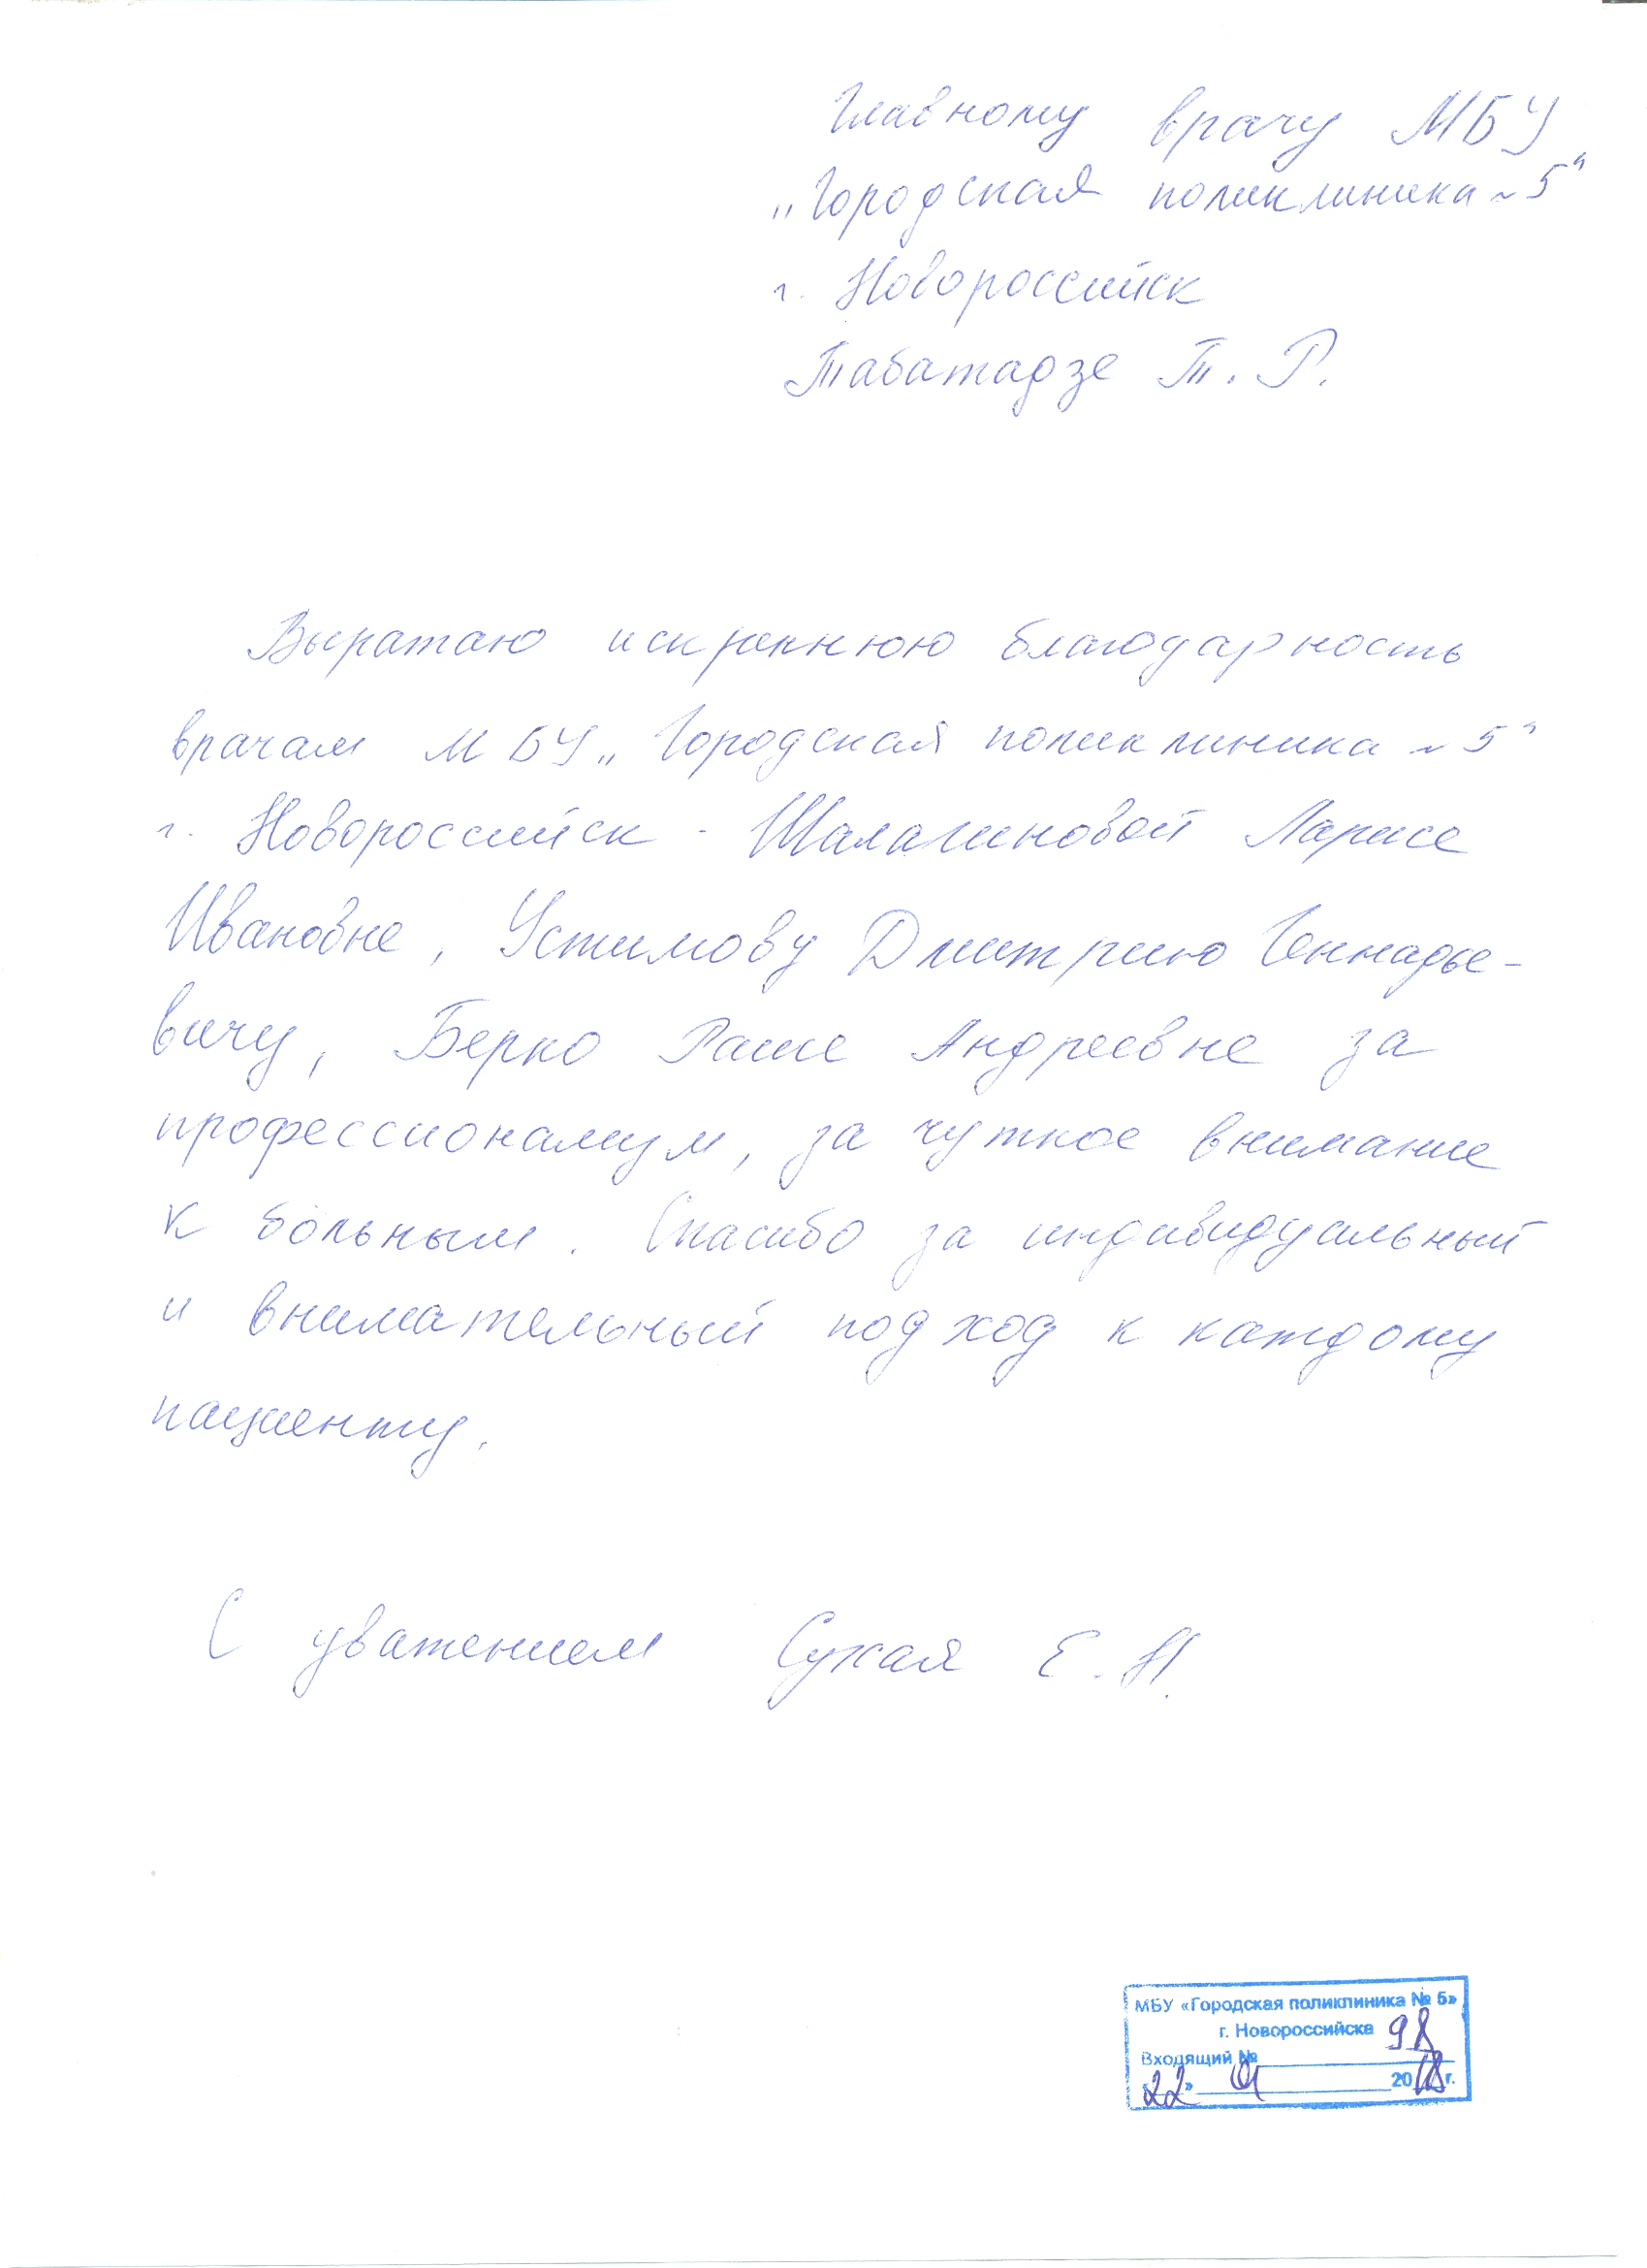 Главному врачу МБУ
„Городская поликлиника ~ 5"
г. Новороссийск
Табатадзе Т. Р.
Выражаю искреннюю благодарность
врачам МБУ „Городская поликлиника ~ 5"
г. Новороссийск - Шалагиновой Ларисе
Ивановне, Устимову Дмитрию Геннадье-
вичу, Берко Раисе Андреевне за
профессионализм, за чуткое внимание
к больным. Спасибо за индивидуальный
и внимательный подход к каждому
пациенту.
С уважением Сухая Е. Н.
МБУ «Городская поликлиника № 5»
г. Новороссийска
Входящий № 98
«22» 01 2018 г.